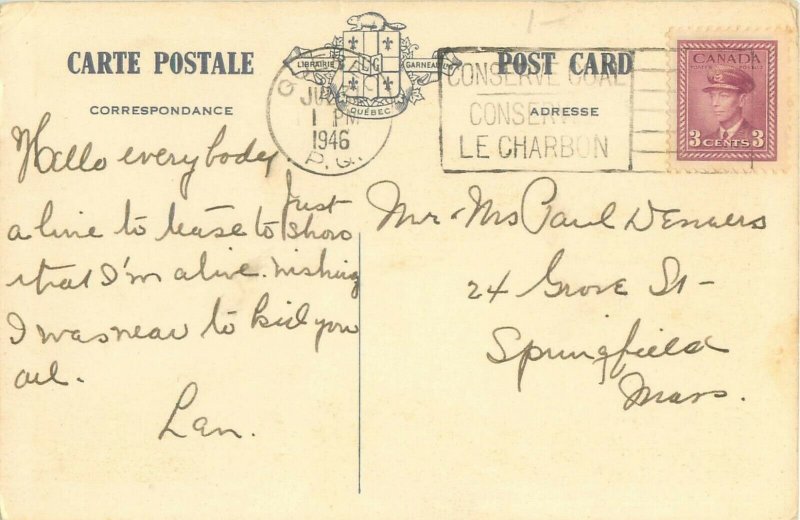 CARTE POSTALE
CORRESPONDANCE
LIBRAIRIE GARNEAU
LG
QUÉBEC
POST CARD
ADRESSE
1 PM
1946
P.Q.
CONSERVE COAL
CONSERVE
LE CHARBON
CANADA
3 CENTS 3
Hello everybody.
Just
a line to tease to show
that I'm alive. Wishing
I was near to kid you
all.
Len.
Mr & Mrs Paul
24 Grove St-
Springfield
Mass.